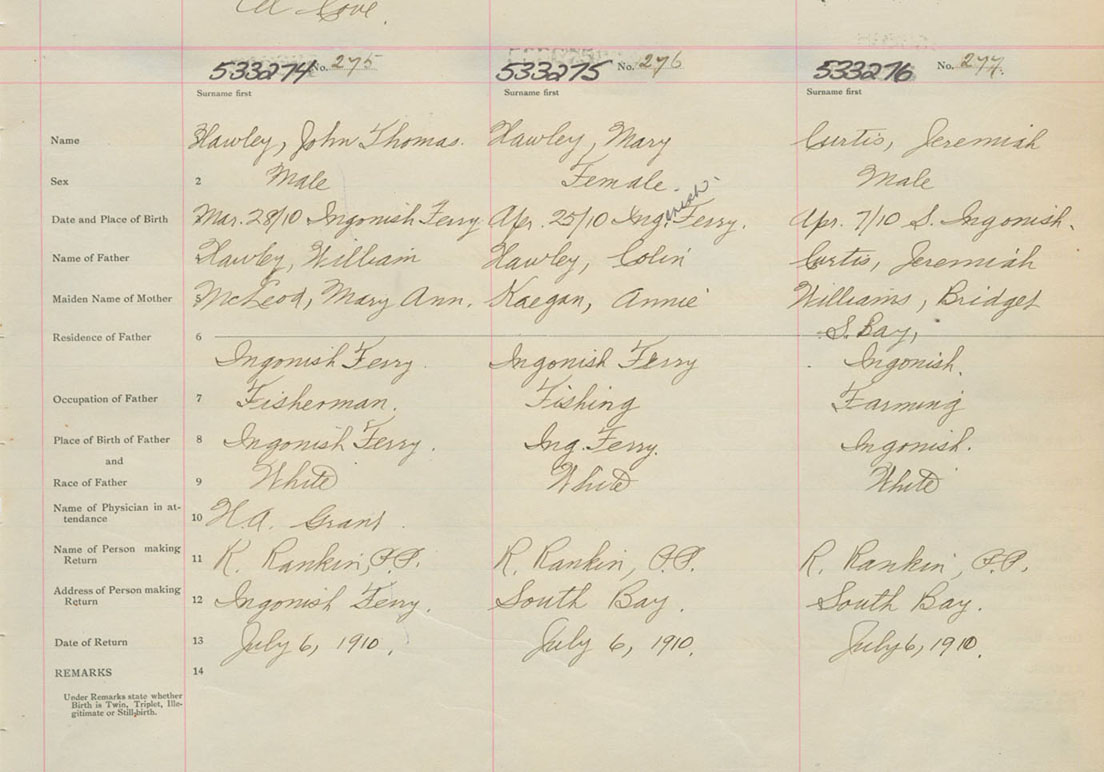 Cove.
533274 No. 275 533275 No. 276 533276 No. 277.
Surname first Surname first Surname first
Name Hawley, John Thomas. Hawley, Mary Curtis, Jeremiah
Sex 2 Male Female. Male
Date and Place of Birth Mar. 28/10 Ingonish Ferry Apr. 25/10 Ingonish Ferry. Apr. 7/10 S. Ingonish.
Name of Father Hawley, William Hawley, Colin Curtis, Jeremiah
Maiden Name of Mother 5 McLeod, Mary Ann. Kaegan, Annie Williams, Bridget
Residence of Father 6 S. Bay,
Ingonish Ferry. Ingonish Ferry Ingonish.
Occupation of Father 7 Fisherman. Fishing Farming
Place of Birth of Father 8 Ingonish Ferry. Ing. Ferry. Ingonish.
and
Race of Father 9 White White White
Name of Physician in at-
tendance 10 H.A. Grant
Name of Person making
Return 11 R. Rankin, P.P. R. Rankin, P.P. R. Rankin, P.P.
Address of Person making
Return 12 Ingonish Ferry. South Bay. South Bay.
Date of Return 13 July 6, 1910. July 6, 1910. July 6, 1910.
REMARKS 14
Under Remarks state whether
Birth is Twin, Triplet, Ille-
gitimate or Still birth.